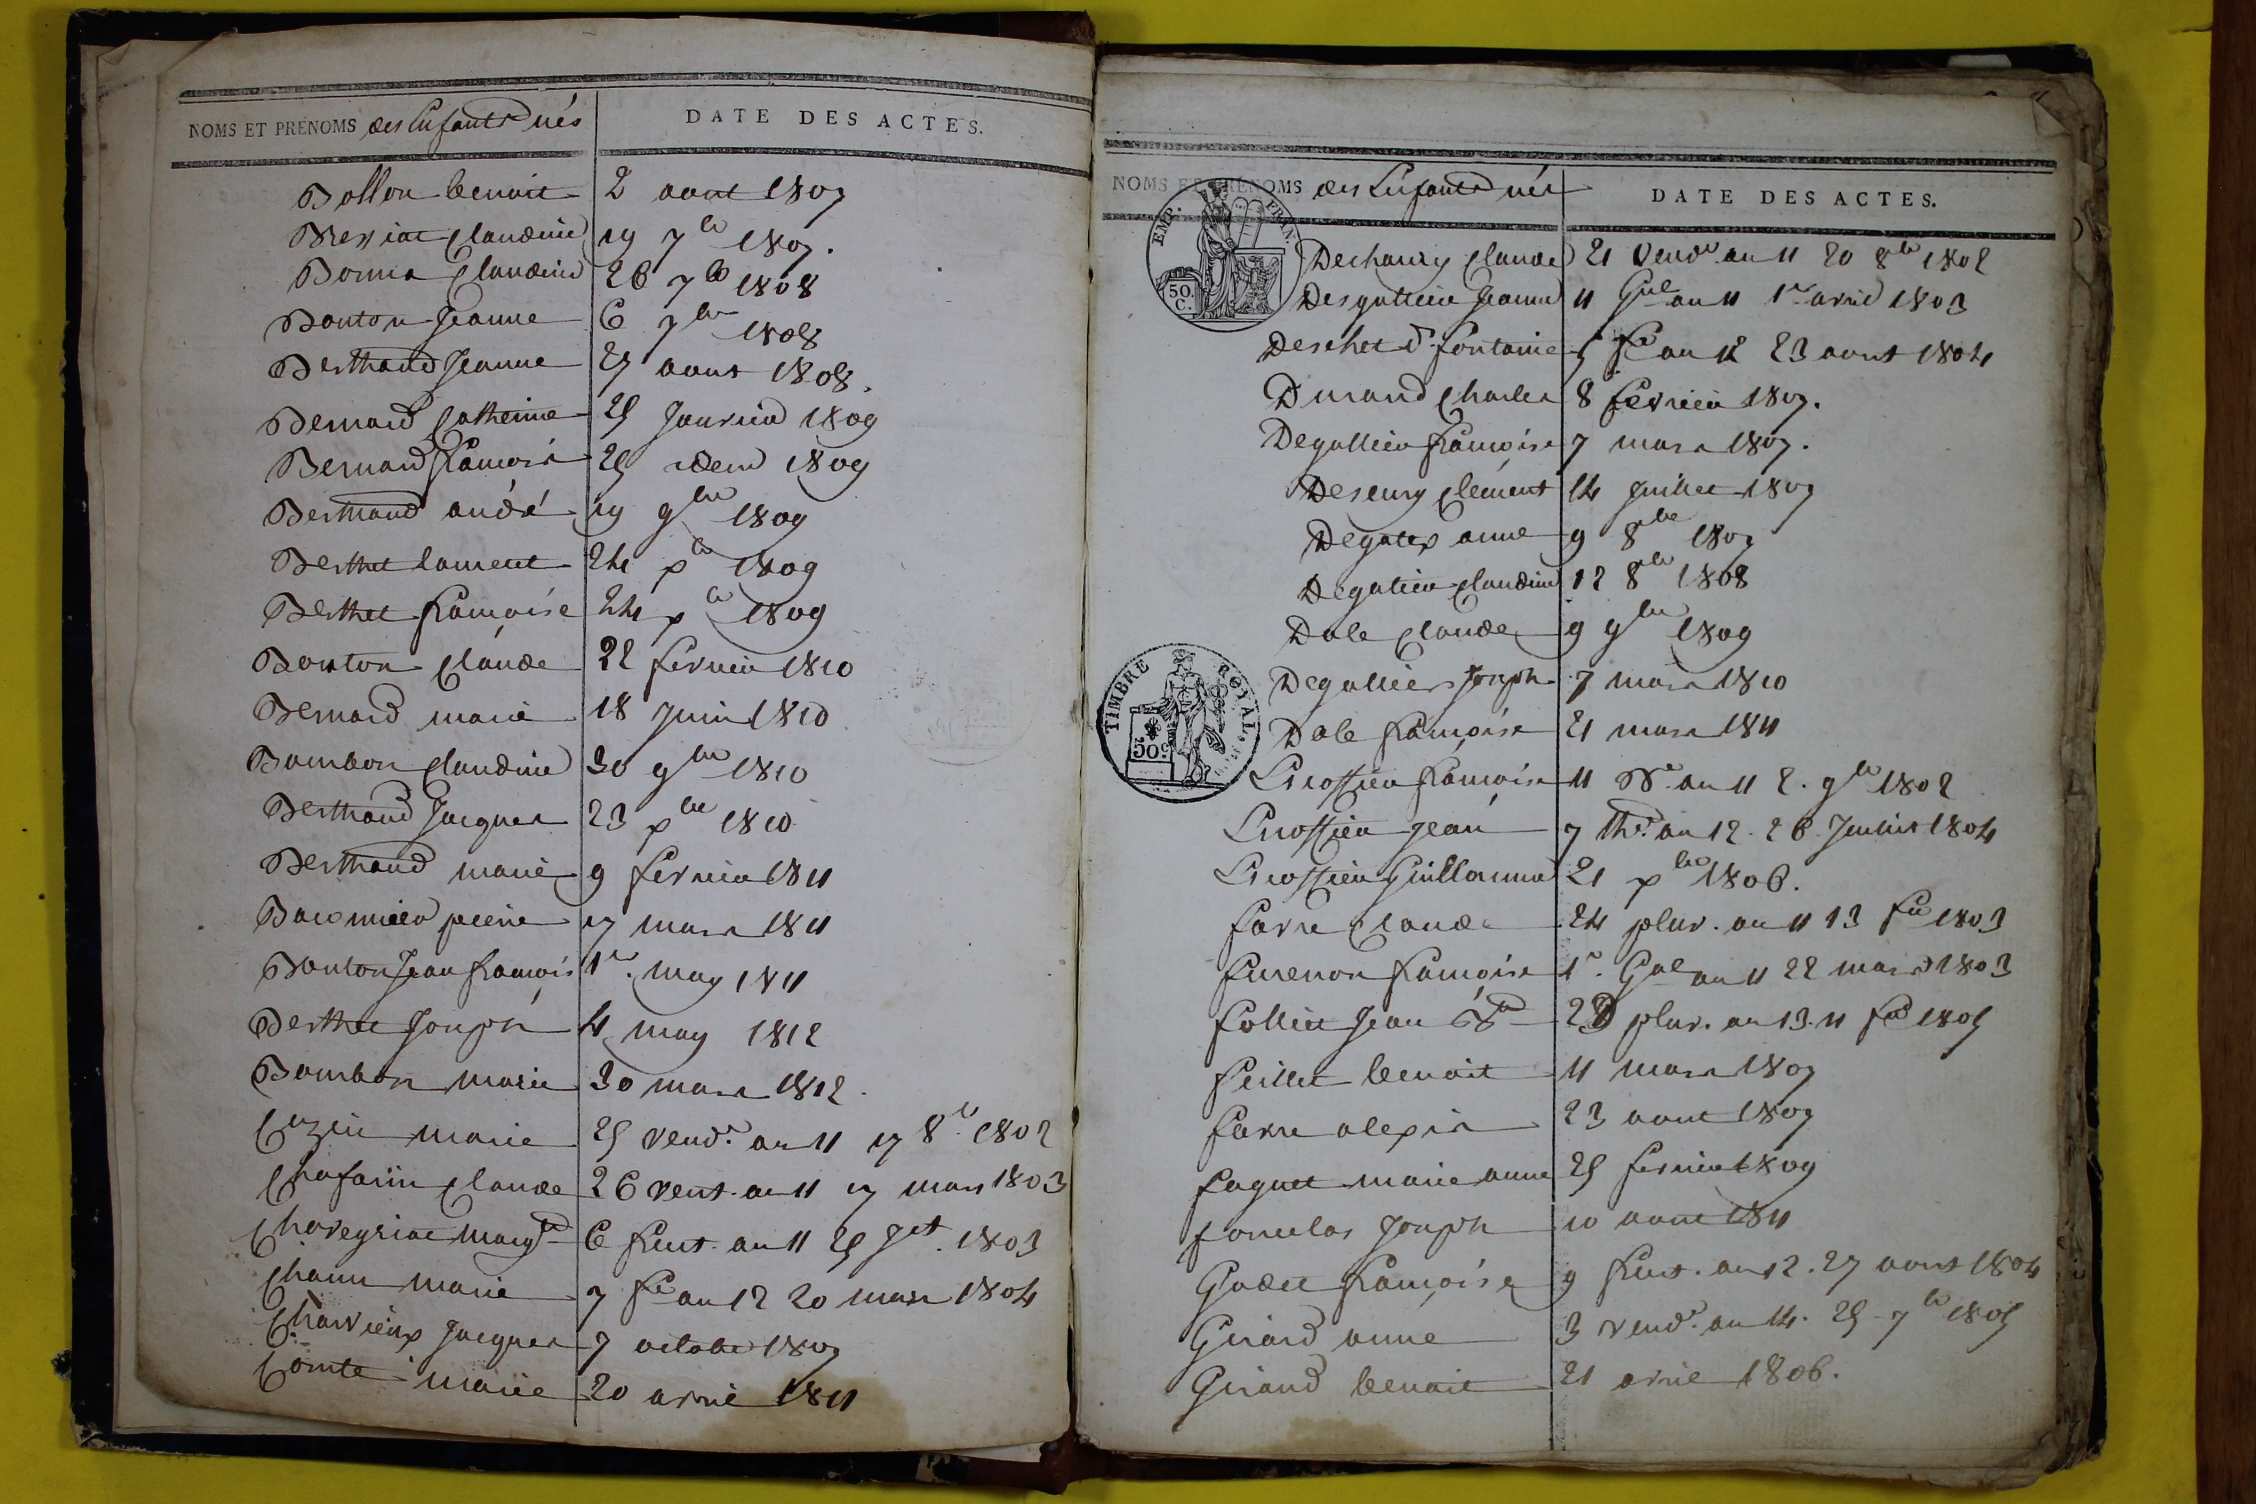 NOMS ET PRENOMS des Enfants nés DATE DES ACTES.
Bollon benoit 2 aout 1807
Bressiat Claudine 19 7bre 1807.
Claudine 26 7bre 1808
Bonton Jeanne 6 7bre 1808
Berthand Jeanne 27 aout 1808.
Bernard Catherine 25 Janvier 1809
Bernard françois 25 idem 1809
Berthaud andré 19 9bre 1809
Berthet laurent 24 xbre 1809
Berthet françoise 24 xbre 1809
Bonton Claude 22 fevrier 1810
Bernard marie 18 Juin 1810
Bombon Claudine 30 9bre 1810
Berthaud Jacques 23 xbre 1810
Berthaud marie 9 fevrier 1811
pierre 17 mars 1811
Bonton Jean francois 1er. may 1811
Berthet Joseph 4 may 1812
Bombon marie 30 mars 1812.
Cuzin marie 25 vendre an 11 17 8bre 1802
Chafarin Claude 26 vent. an 11 17 mars 1803
Chaveyriat margte 6 fruct. an 11 25 Jet. 1803
marie 7 an 12 20 mars 1804
Charvieux Jacques 7 octobre 1807
Comte marie 20 avril 1811
NOMS ET PRENOMS des Enfants nés DATE DES ACTES.
EMP. FRAN.
50. C.
Claude 21 vendre an 11 20 8bre 1802
Desguttieu Jeanne 11 Gal an 11 1er avril 1803
fontaine 5 an 12 23 aout 1804
Durand Charles 8 fevrier 1807.
Degallieu françoise 7 mars 1807.
Clément 14 Juillet 1807
Degatex anne 9 8bre 1807
Degatieu Claudine 12 8bre 1808
Dole Claude 9 9bre 1809
Degallier Joseph 7 mars 1810
TIMBRE ROYAL
50c
Dole françoise 21 mars 1811
Ecossieu françoise 11 Bre. an 11 2. 9bre 1802
Ecossieu Jean 7 thr. an 12. 26 Juillet 1804
Ecossieu Guillaume 21 xbre 1806.
farre Claude 24 pluv. an 11 13 fer 1803
françoise 1er. Gal an 11 22 mars 1803
folliet Jean Bte pluv. an 13. 11 fer 1805
feillet benoit 11 mars 1807
farre alexis 23 aout 1807
faguet marie anne 25 fevrier 1809
Joseph 10 aout 1811
Godet françoise 9 fruct. an 12. 27 aout 1804
Girard anne 3 vendre. an 14. 25 7bre 1805
Giraud benoit 21 avril 1806.